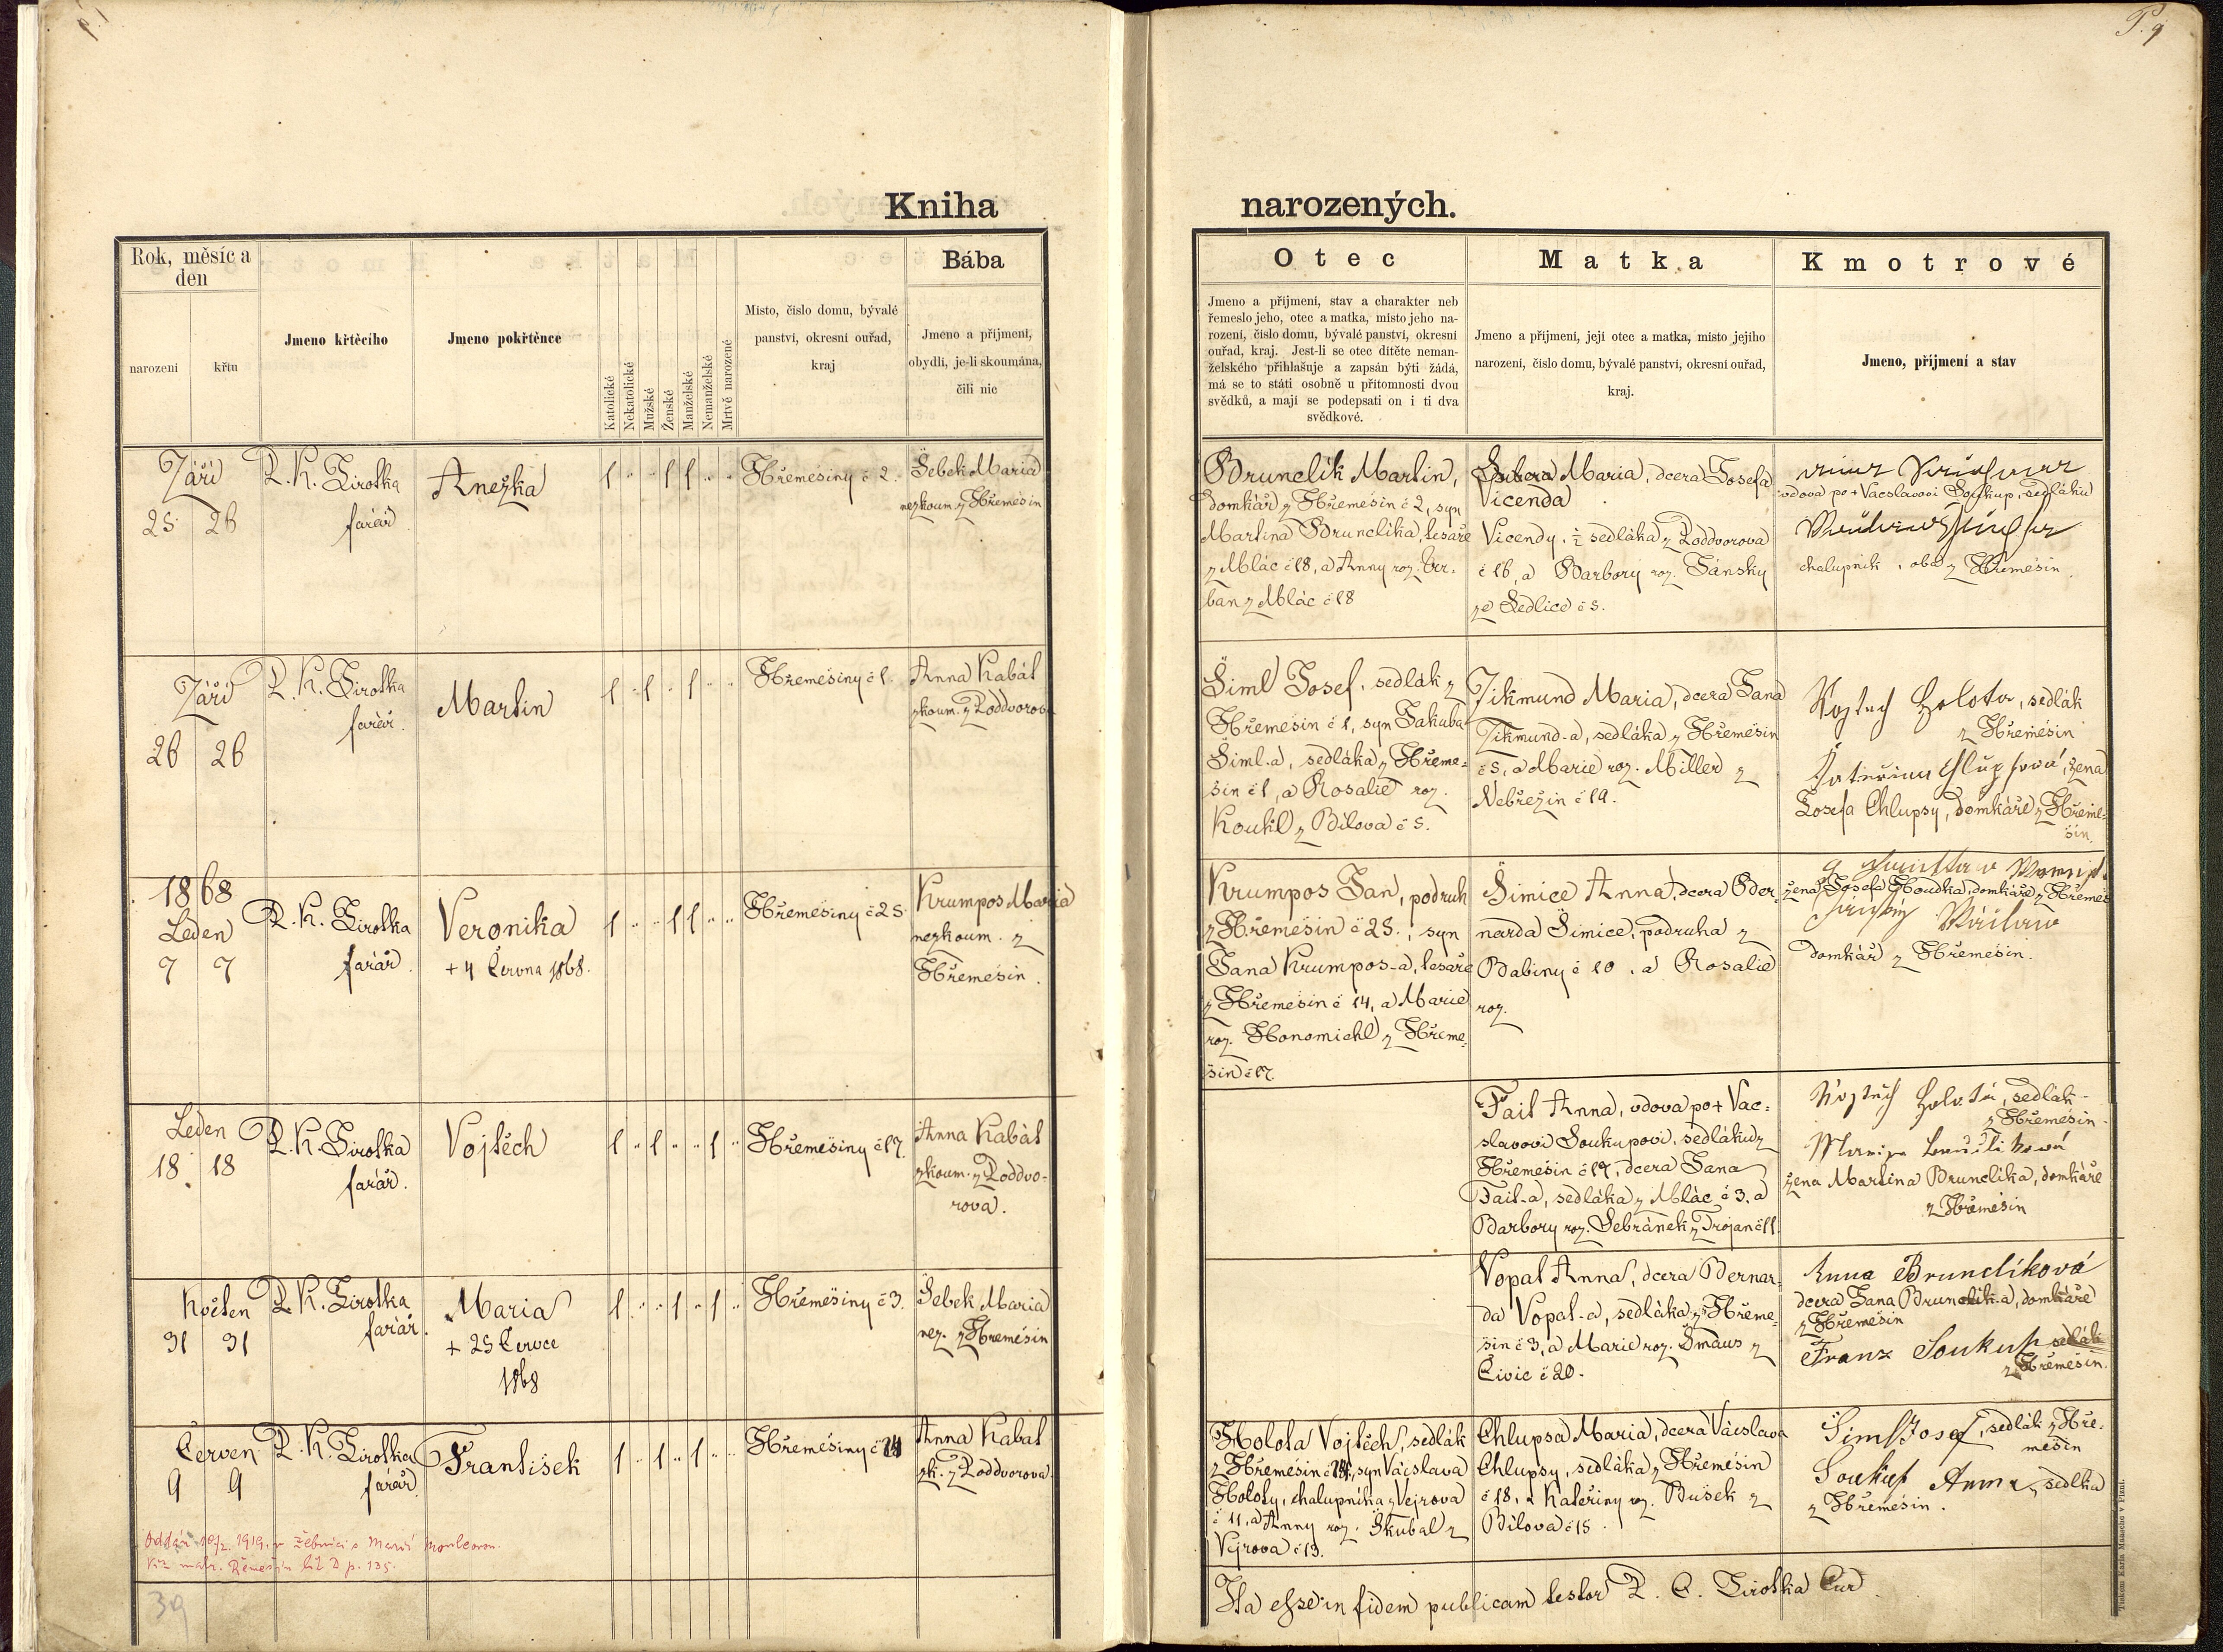 P. 9
Kniha
narozených.
Rok, měsíc a
den
narození
křtu
Jmeno křtěcího
Jmeno pokřtěnce
Katolické
Nekatolické
Mužské
Ženské
Manželské
Nemanželské
Mrtvě narozené
Místo, číslo domu, bývalé
panství, okresní ouřad,
kraj
Bába
Jmeno a příjmení,
obydlí, je-li skoumána,
čili nic
Otec
Jmeno a příjmení, stav a charakter neb
řemeslo jeho, otec a matka, místo jeho na-
rození, číslo domu, bývalé panství, okresní
ouřad, kraj. Jest-li se otec dítěte neman-
želského přihlašuje a zapsán býti žádá,
má se to státi osobně u přítomnosti dvou
svědků, a mají se podepsati on i ti dva
svědkové.
Matka
Jmeno a příjmení, její otec a matka, místo jejího
narození, číslo domu, bývalé panství, okresní ouřad,
kraj.
Kmotrové
Jmeno, příjmení a stav
Září
25 26
P. K. Sirotka
farář
Anežka
1 " " 1 1 " "
Hřemešiny č 2.
Šebek Maria
nezkoum. z Hřemešin
Brunclík Martin,
domkář z Hřemešin č 2, syn
Martina Brunclíka, tesaře
z Mlác č 18, a Anny roz. Ur-
ban z Mlác č 18
Maria, dcera Josefa
Vicenda
Vicendy, ½ sedláka z Poddvorova
č 16, a Barbory roz. Jánsky
ze Sedlice č 5.
vdova po + Vácslavovi Soukup, sedláku
chalupník, oba z Hřemešin.
Září
26 26
P. K. Sirotka
farář.
Martin
1 " 1 " 1 " "
Hřemešiny č 1.
Anna Kabát
zkoum. z Poddvorova
Šiml Josef, sedlák z
Hřemešin č 1, syn Jakuba
Šiml-a, sedláka z Hřeme-
šin č 1, a Rosalie roz.
Koukl z Bílova č 5.
Zikmund Maria, dcera Jana
Zikmund-a, sedláka z Hřemešin
č 5, a Marie roz. Miller z
Nebřezin č 19.
Vojtech Holota, sedlák
z Hřemešin
Kateřina Chlupsová, žena
Josefa Chlupsy, domkáře z Hřeme-
šin.
1868
Leden
7 7
P. K. Sirotka
farář
Veronika
+ 4 Června 1868.
1 " " 1 1 " "
Hřemešiny č 25.
Krumpos Maria
nezkoum. z
Hřemešin.
Krumpos Jan, podruh
z Hřemešin č 25., syn
Jana Krumpos-a, tesaře
z Hřemešin č 14, a Marie
roz. Honomichl z Hřeme-
šin č 17.
Šimice Anna, dcera Ber-
narda Šimice, podruha z
Babiny č 10, a Rosalie
roz.
žena Josefa Houdka, domkáře z Hřemeš
domkář z Hřemešin.
Leden
18 18
P. K. Sirotka
farář.
Vojtěch
1 " 1 " " 1 "
Hřemešiny č 17.
Anna Kabát
zkoum. z Poddvo-
rova.
Fait Anna, vdova po + Vác-
slavovi Soukupovi, sedláku z
Hřemešin č 17, dcera Jana
Fait-a, sedláka z Mlác č 3, a
Barbory roz. Sebránek z Trojan č 11.
Vojtěch Holota, sedlák
z Hřemešin
žena Martina Brunclíka, domkáře
z Hřemešin
Květen
31 31
P. K. Sirotka
farář.
Maria
+ 25 Července
1868
1 " " 1 " 1 "
Hřemešiny č 3.
Šebek Maria
nez. z Hřemešin
Vopat Anna, dcera Bernar-
da Vopat-a, sedláka z Hřeme-
šin č 3, a Marie roz. Šmaus z
Čivic č 20.
Anna Brunclíková
dcera Jana Brunclík-a, domkáře
z Hřemešin
Franz Soukup sedlák
z Hřemešin.
Červen
9 9
P. K. Sirotka
farář
František
1 " 1 " 1 " "
Hřemešiny č 24
Anna Kabat
zk. z Poddvorova
Holota Vojtěch, sedlák
z Hřemešin č 24, syn Vácslava
Holoty, chalupníka z Vejrova
č 11, a Anny roz. Škubal z
Vejrova č 13.
Chlupsa Maria, dcera Vácslava
Chlupsy, sedláka z Hřemešin
č 18, a Kateřiny roz. Bušek z
Bílova č 15.
Siml Josef, sedlák z Hře-
mešin
Soukup Anna, sedlka
z Hřemešin.
Oddán 1919 v Žebnici s Marií
Viz matr. Řemešín lit D p. 135.
39
Ita esse in fidem publicam testor P. C. Sirotka Cur.
Tiskem Karla Maasche v Plzni.